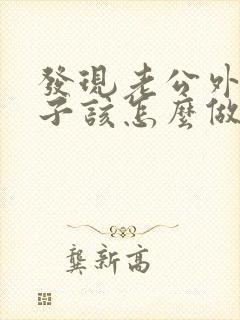 發現老公外
子該怎麼做
龔新高